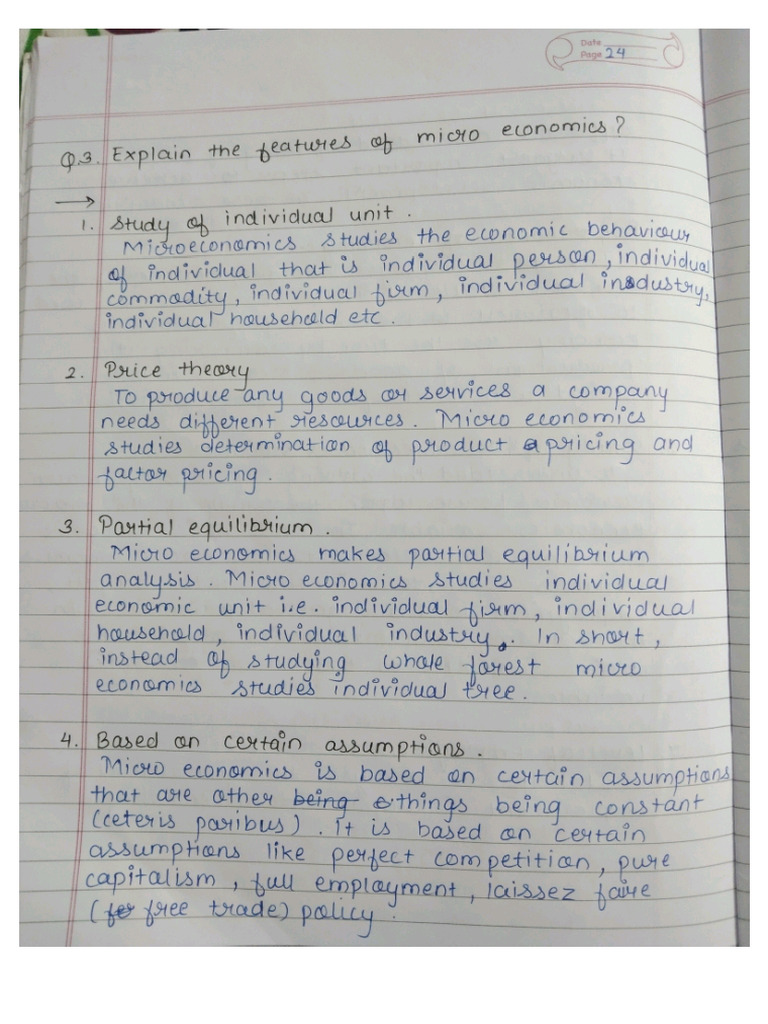 Date
Page 24
Q.3. Explain the features of micro economics?
→
1. Study of individual unit.
Microeconomics studies the economic behaviour
of individual that is individual person, individual
commodity, individual firm, individual industry,
individual household etc.
2. Price theory
To produce any goods or services a company
needs different resources. Micro economics
studies determination of product pricing and
factor pricing.
3. Partial equilibrium.
Micro economics makes partial equilibrium
analysis. Micro economics studies individual
economic unit i.e. individual firm, individual
household, individual industry. In short,
instead of studying whole forest micro
economics studies individual tree.
4. Based on certain assumptions.
Micro economics is based on certain assumptions
that are other being things being constant
(ceteris paribus). it is based on certain
assumptions like perfect competition, pure
capitalism, full employment, laissez faire
(free trade) policy.